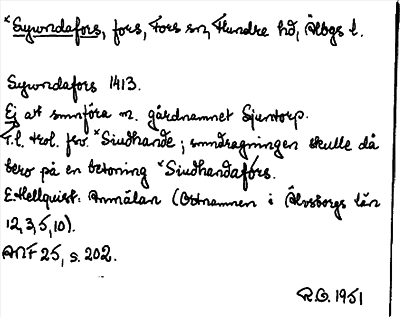 *Sywndafors, fors, Fors sn, Flundre hd, Älvbgs l.
Sywndafors 1413.
Ej att smnföra m. gårdnamnet Sjuntorp.
T.l. trol. frv. *Siudhande; smndragningen skulle då
bero på en betoning *Siudhandafórs.
E. Hellquist: Anmälan (Ortnamnen i Älvsborgs län
12, 3, 5, 10).
ANF 25, s. 202.
R.O. 1951